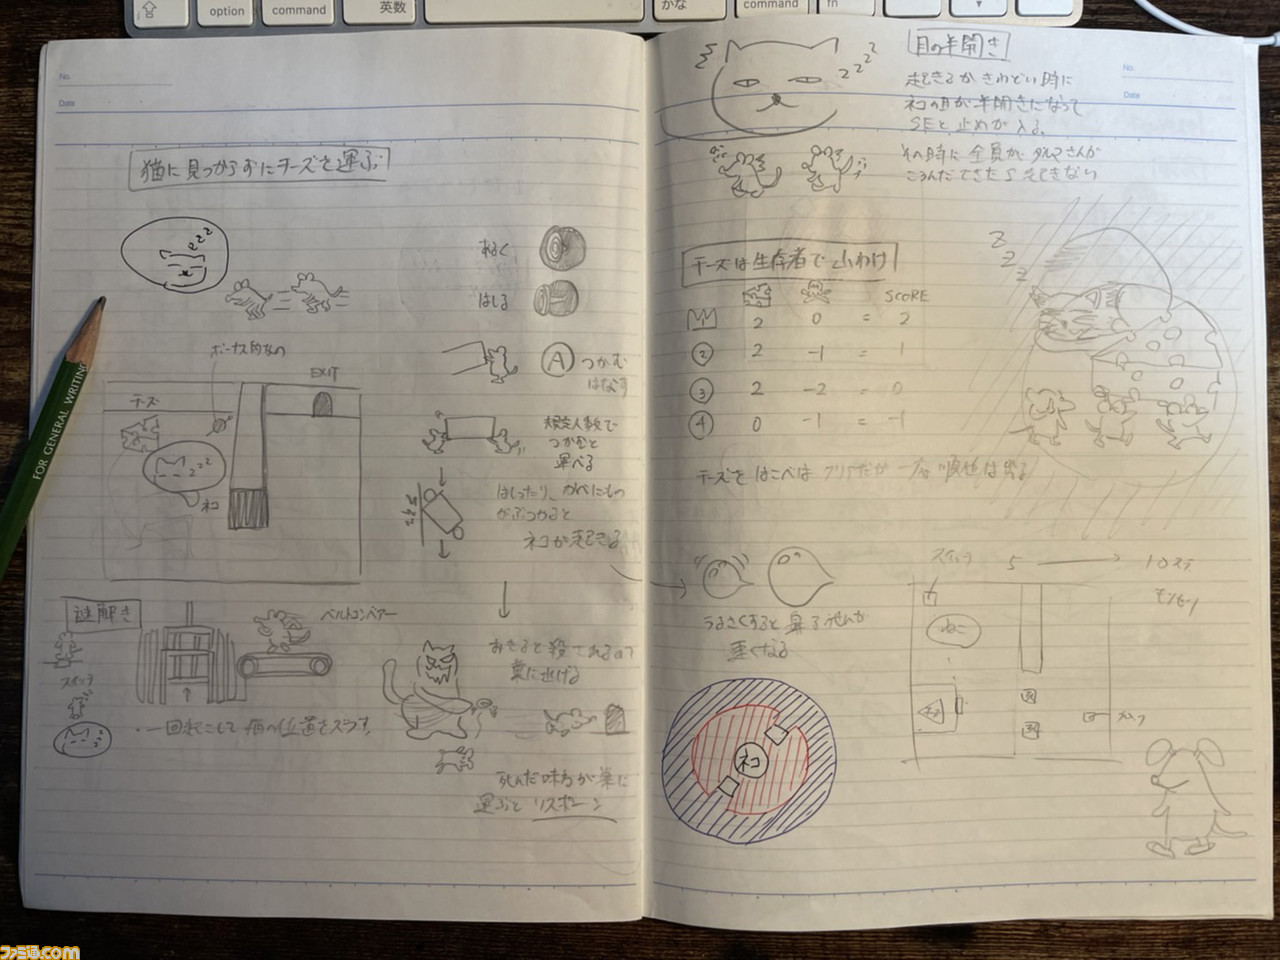 option
command
英数
かな
command
fn
No.
Date
猫に見つからずにチーズを運ぶ
zzz
あるく
はしる
ボーナス的なの
EXIT
チーズ
zzz
ネコ
A つかむ
はなす
規定人数で
つかむと
運べる
はしったり、かべにもの
がぶつかると
ネコが起きる
謎解き
スイッチ
ベルトコンベアー
・一回起こして猫の位置をズラす。
おきると殺されるので
巣に逃げる
死んだ味方が巣に
運ぶとリスポーン
FOR GENERAL WRITING
zzz
目の半開き
No.
Date
起きるかきわどい時に
ネコの目が半開きになって
SEと止めが入る。
その時に全員がダルマさんが
ころんだできたら起きない
チーズは生存者で山わけ
SCORE
1 2 0 = 2
2 2 -1 = 1
3 2 -2 = 0
4 0 -1 = -1
zzz
チーズをはこべばクリアだが一応順位は出る
うるさくすると鼻ちょうちんが
重くなる
ネコ
スイッチ 5 → 10ステ
ねこ
ファミ通.com